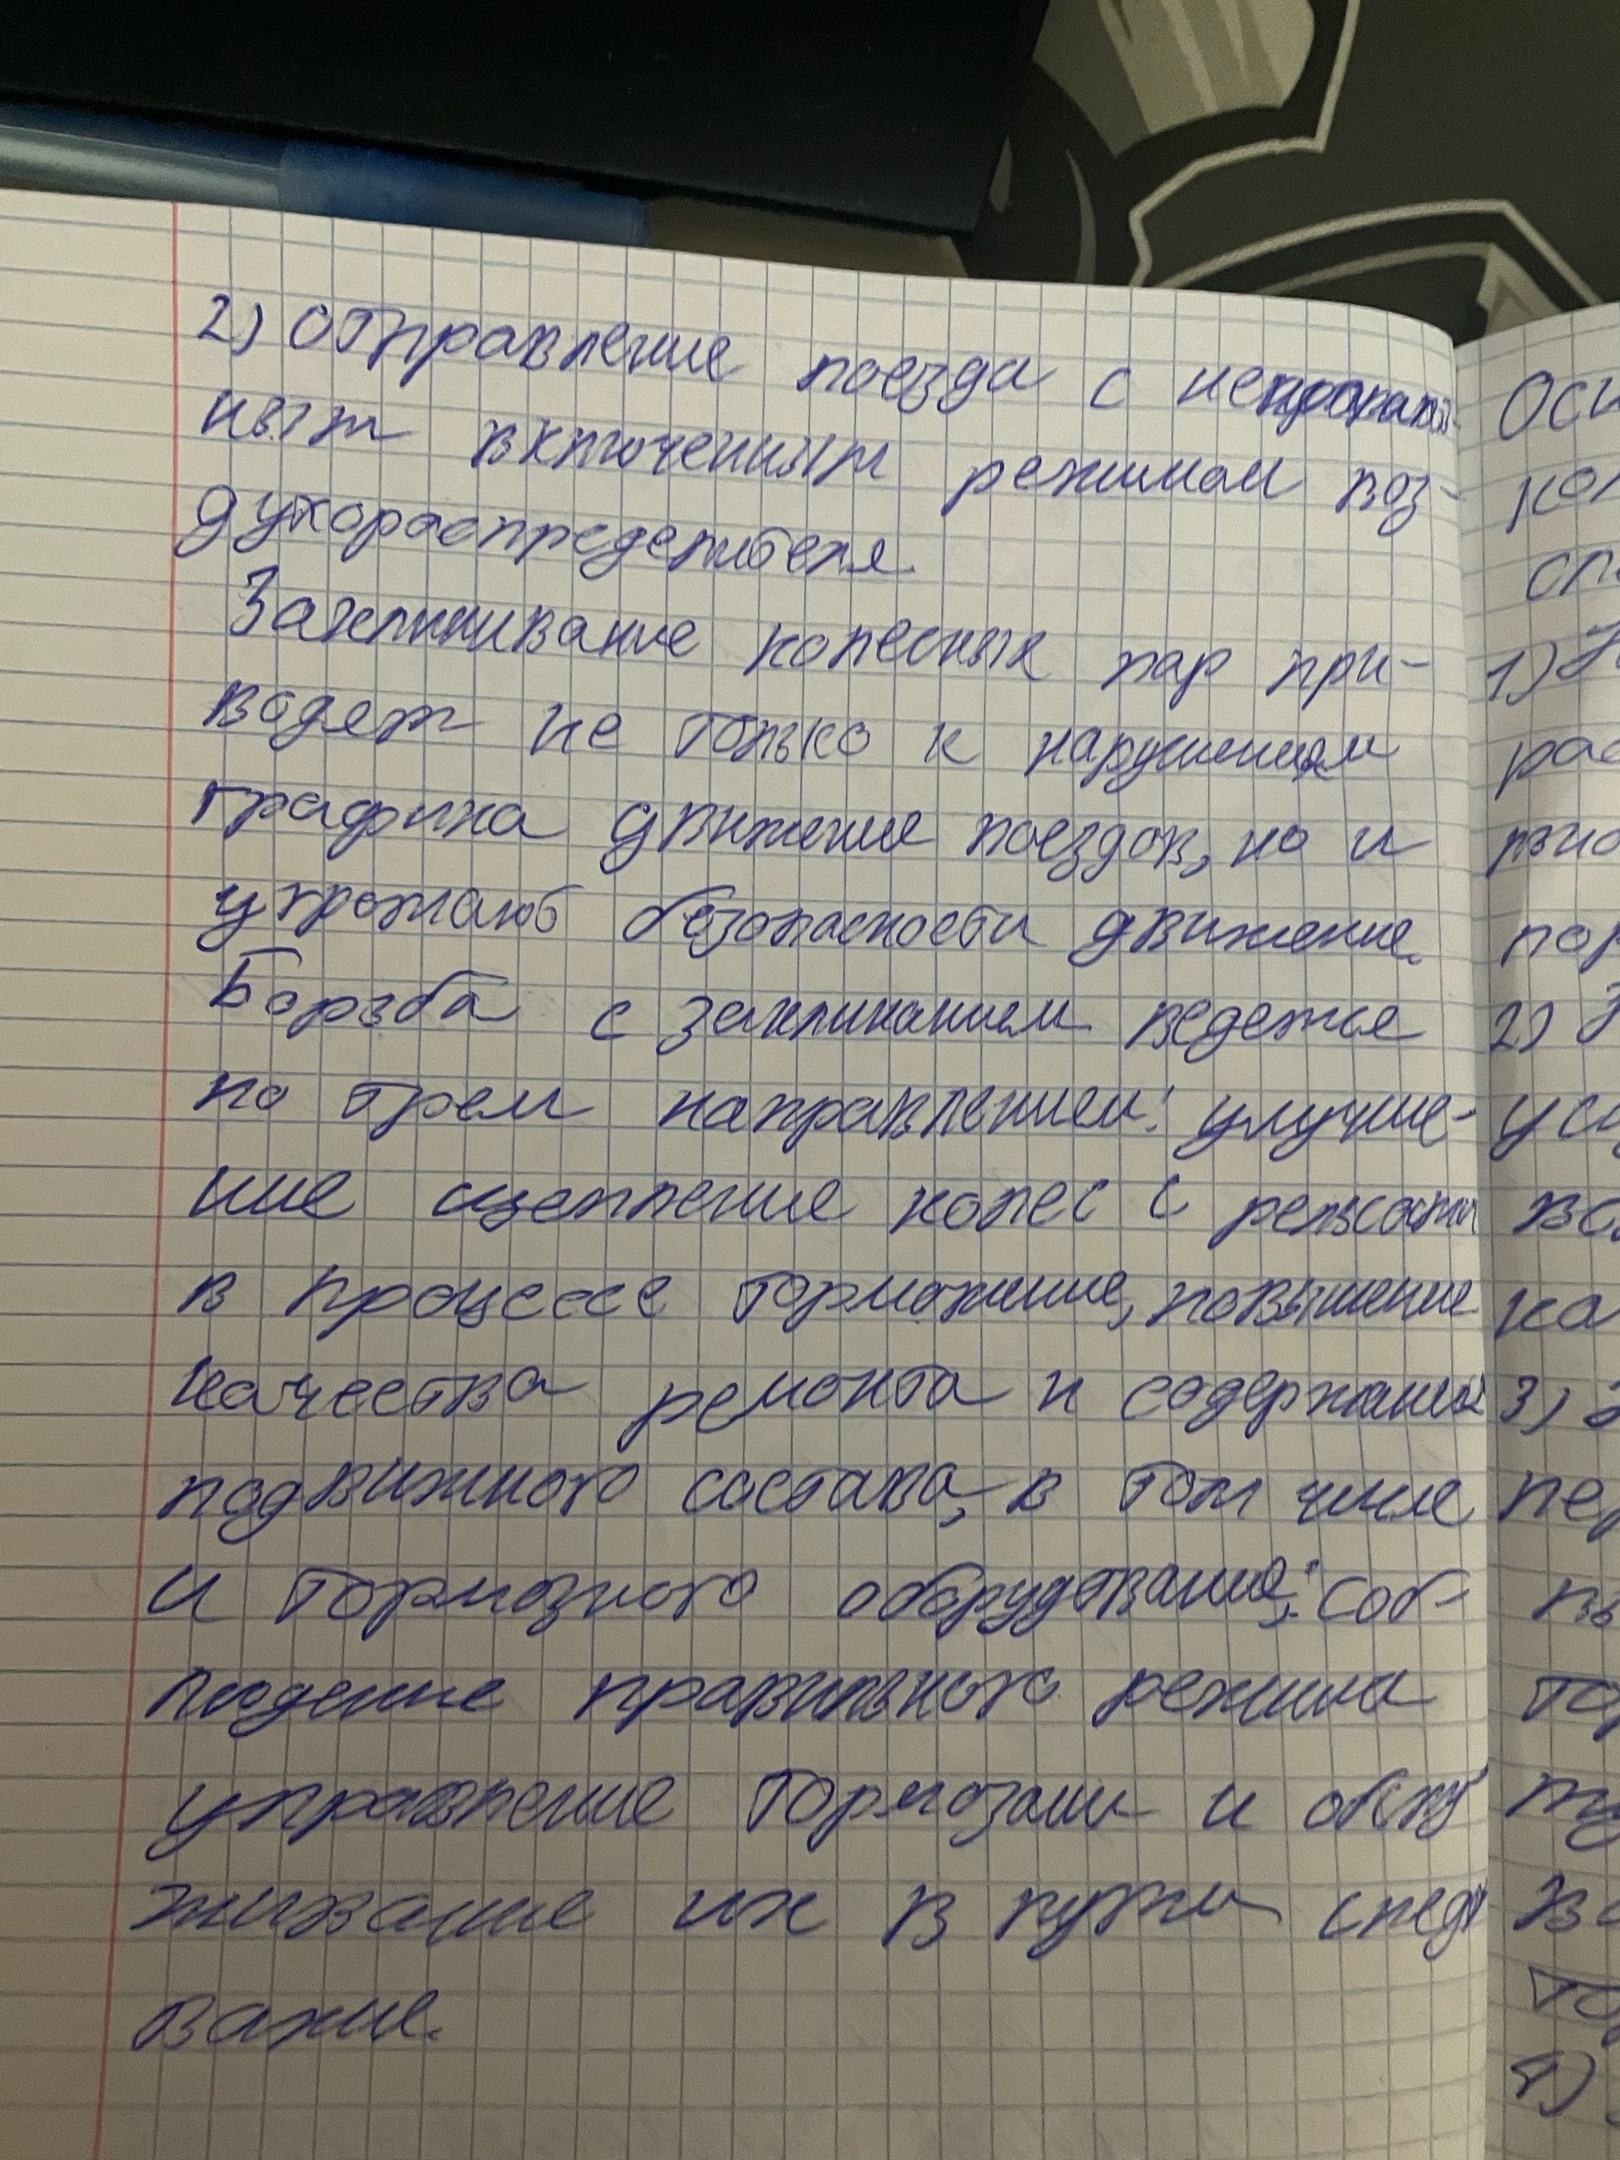 2) Отправление поезда с неправиль-
ным включенным режимом воз-
духораспределителя.
Заклинивание колесных пар при-
водят не только к нарушениям
графика движение поездов, но и
угрожают безопасности движение.
Борьба с заклиниванием ведется
по трем направлением: улучше-
ние сцепление колес с рельсами
в процессе торможение, повышение
качества ремонта и содержания
подвижного состава, в том числе
и тормозного оборудование; соб-
людение правильного режима
управление тормозами и обслу
живание их в пути следо
вание.
Осн
кол
сл
1)
рас
пор
2)
усл
ва
ка
3)
пе
то
ту
в
то
4)